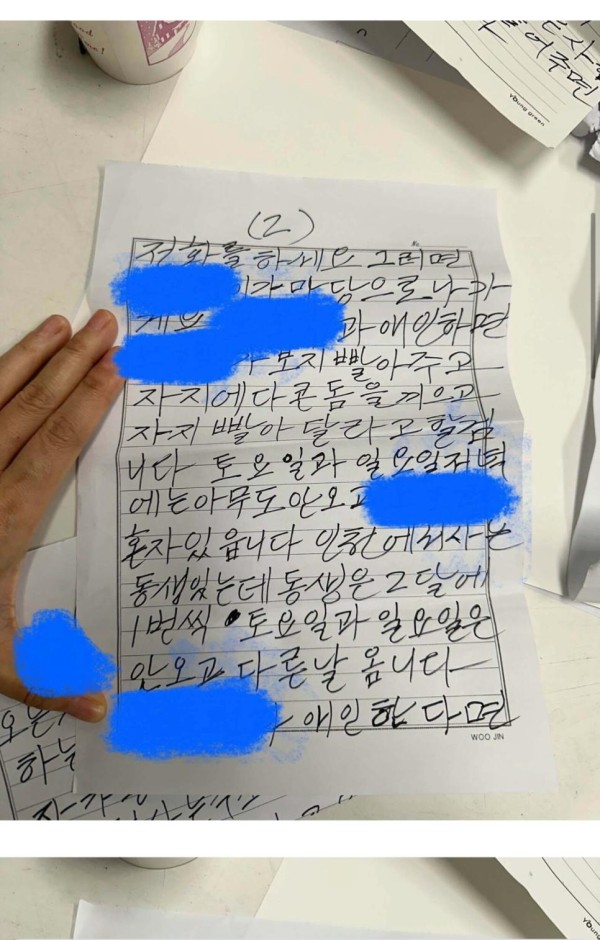 어주면
young green
(2)
전화를 하세요 그러면
가 마담으로 나가
게요 과 애인하면
가 보지 빨아주고
자지에다 콘돔을 끼우고
자지 빨아 달라고 할겁
니다 토요일과 일요일저녁
에는 아무도 안오고
혼자 있읍니다 인천에서 사는
동생있는데 동생은 2달에
1번씩 토요일과 일요일은
안오고 다른날 옵니다
애인한다면
WOO JIN
하는